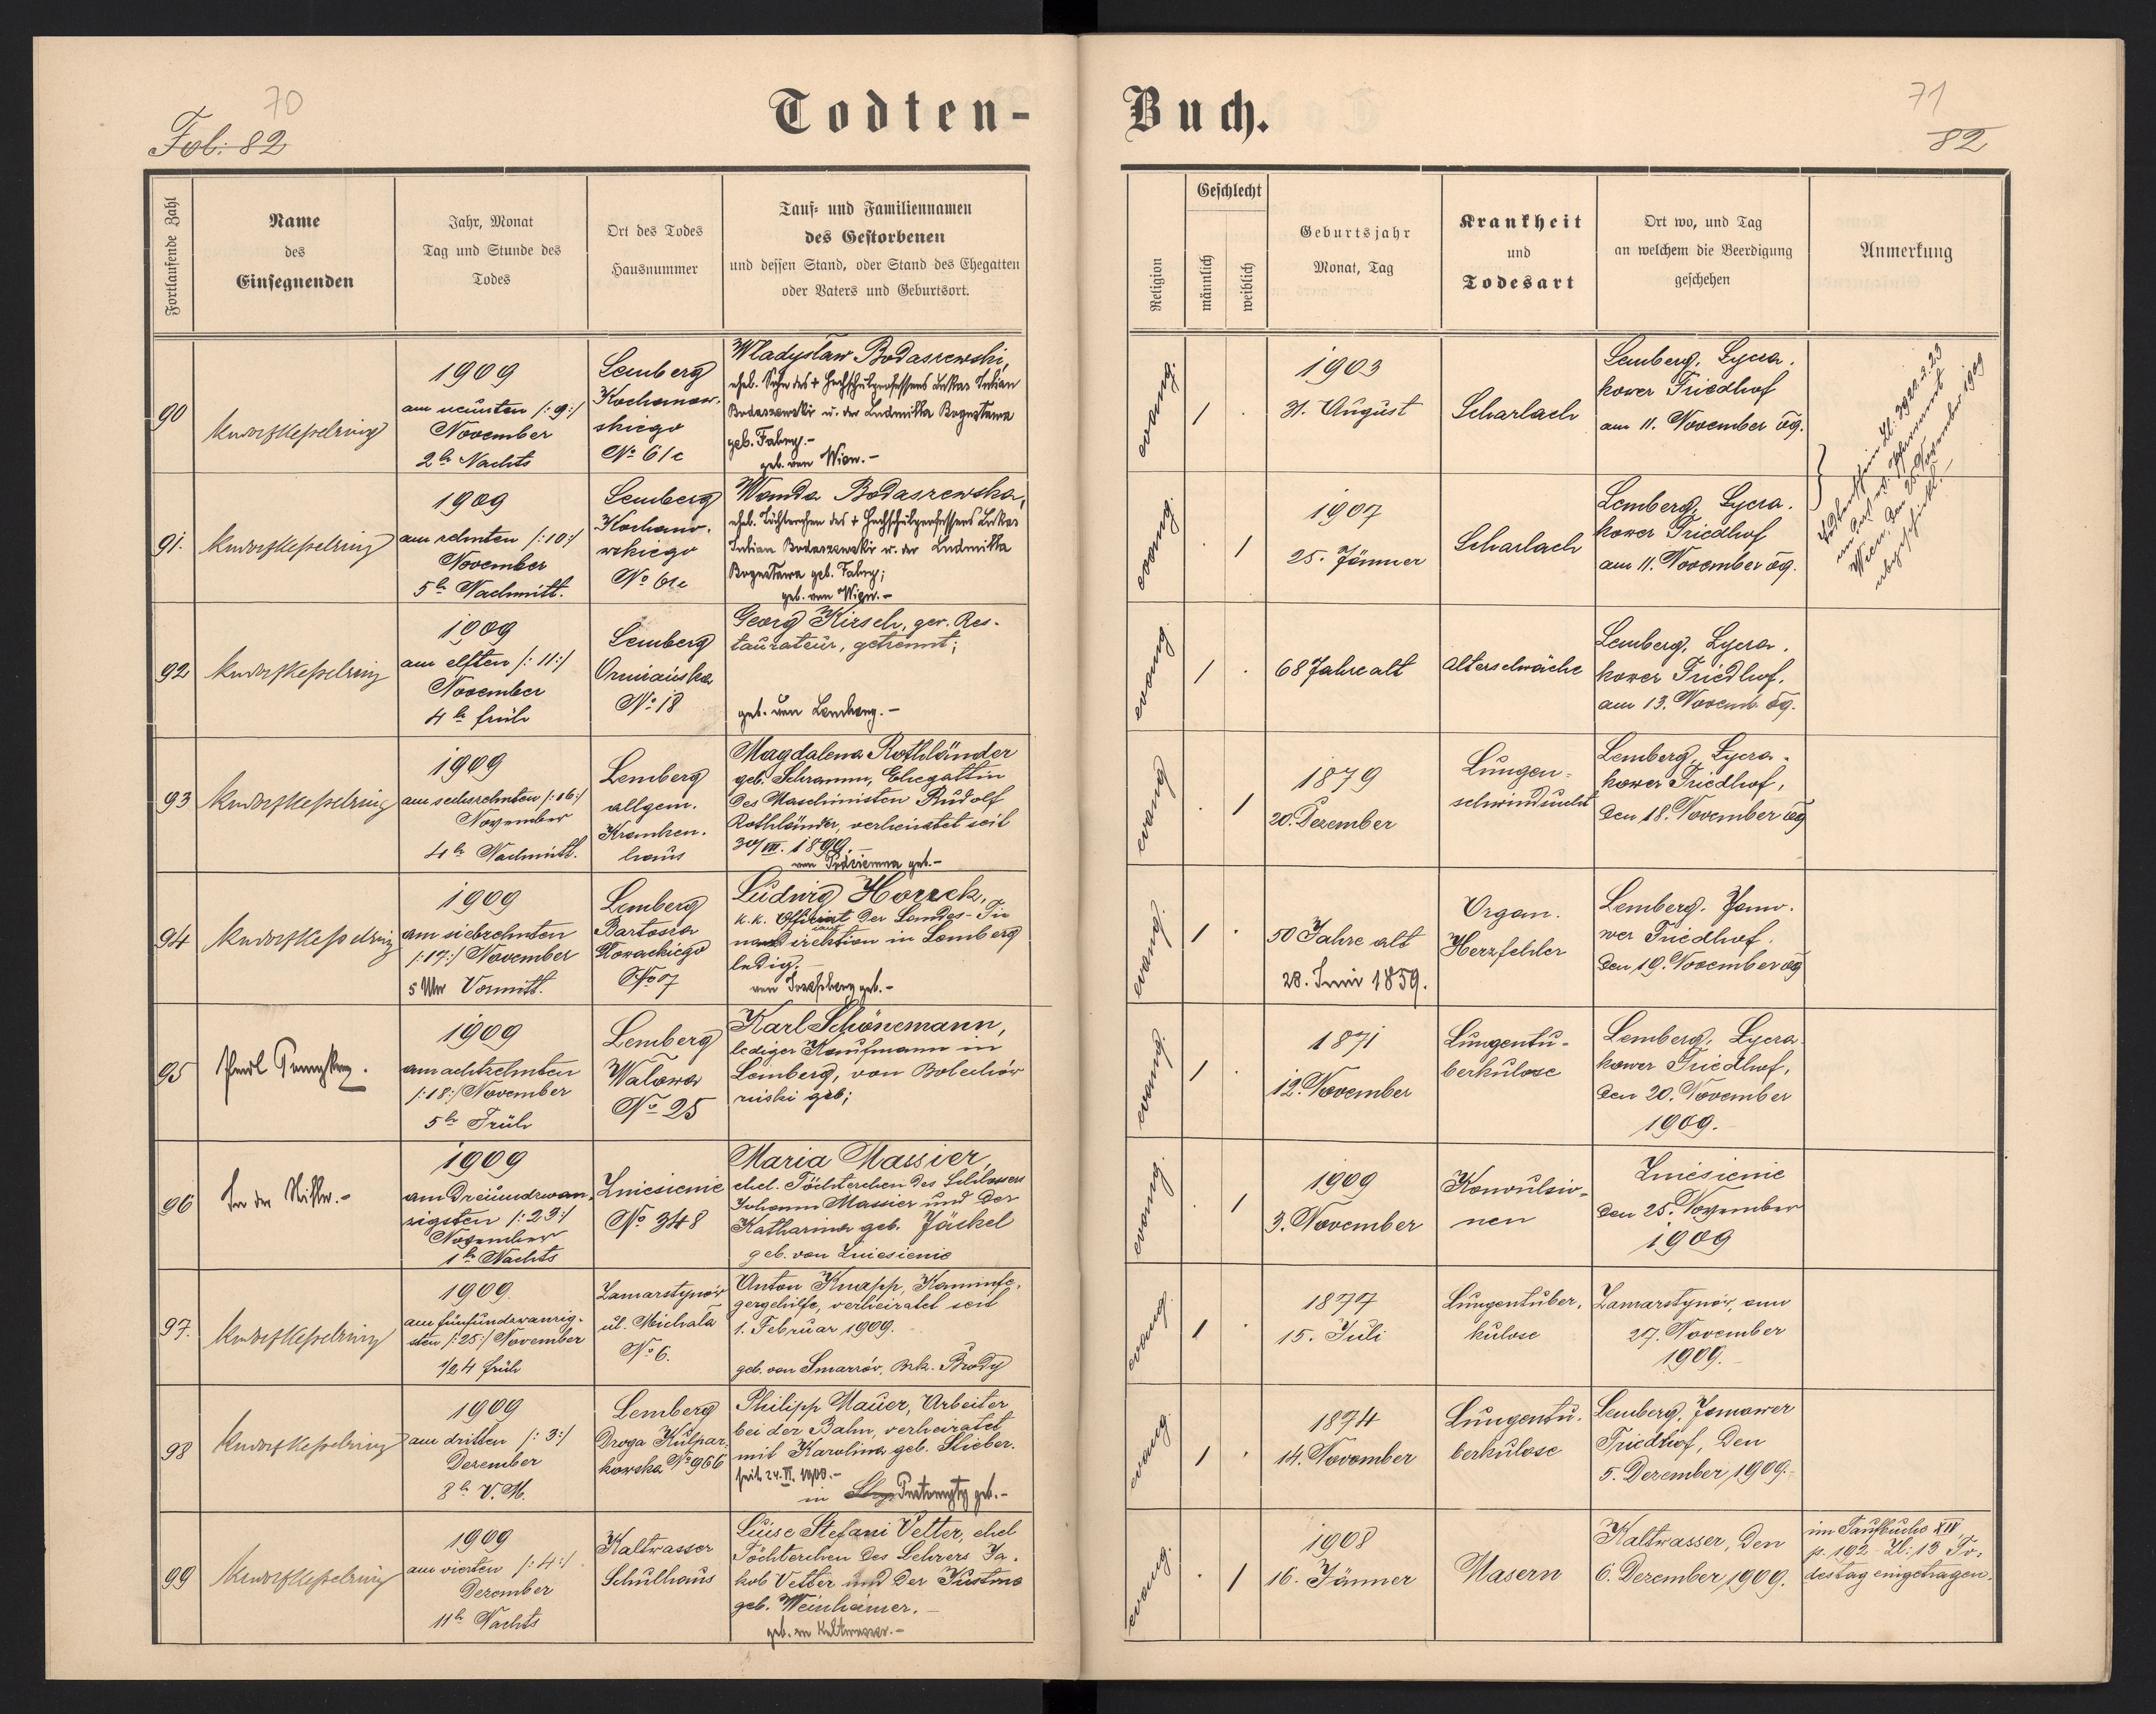 70
Fol. 82
Todten-
Buch.
71
82
Fortlaufende Zahl
Name
des
Einsegnenden
Jahr, Monat
Tag und Stunde des
Todes
Ort des Todes
Hausnummer
Tauf- und Familiennamen
des Gestorbenen
und dessen Stand, oder Stand des Ehegatten
oder Vaters und Geburtsort.
Religion
Geschlecht
männlich
weiblich
Geburtsjahr
Monat, Tag
Krankheit
und
Todesart
Ort wo, und Tag
an welchem die Beerdigung
geschehen
Anmerkung
90
1909
am neunten /:9:/
November
2h Nachts
Lemberg
Kochanow-
skiego
No 61c
Wladyslaw Bodaszewski,
ehel. Sohn des + Hochschulprofessors Lukas Julian
Bodaszewski u. der Ludmilla Bogusława
geb. Fabry.-
geb. von Wien.-
evang.
1
1903
31. August
Scharlach
Lemberg, Lycza-
kower Friedhof
am 11. November 09.
91.
1909
am zehnten /:10:/
November
5h Nachmitt.
Lemberg
Kochano-
wskiego
No 61c
Wanda Bodaszewska,
ehel. Töchterchen des + Hochschulprofessors Lukas
Julian Bodaszewski u. der Ludmilla
Bogusława geb. Fabry;
geb. von Wien.-
evang.
1
1907
25. Jänner
Scharlach
Lemberg, Lycza-
kower Friedhof
am 11. November 09.
Wien, den 25. November 1909
92
1909
am elften /:11:/
November
4h früh
Lemberg
No 18
Georg Kirsch, gew. Res-
taurateur, getrennt;
geb. von Lemberg.-
evang
1
68 Jahre alt
Altersschwäche
Lemberg, Lycza-
kower Friedhof,
am 13. Novemb. 09.
93
1909
am sechzehnten /:16:/
November
4h Nachmitt.
Lemberg
allgem.
Kranken-
haus
Magdalena Rothländer
geb. Schramm, Ehegattin
des Maschinisten Rudolf
Rothländer, verheiratet seit
30/VII. 1899.
evang
1
1879
20. Dezember
Lungen-
schwindsucht
Lemberg, Lycza-
kower Friedhof,
den 18. November 09
94
1909
am siebzehnten
/:17:/ November
5 Uhr Vormitt.
Lemberg
Bartosza
Głowackiego
No 7
Ludwig Horzek,
k.k. Offiziant der Landes-Fi-
nanzdirektion in Lemberg
ledig.
evang.
1
50 Jahre alt
28. Juni 1859.
Organ.
Herzfehler
Lemberg. Jano-
wer Friedhof.
den 19. November 09
95
1909
am achtzehnten
/:18:/ November
5h Früh
Lemberg
Walowa
No 25
Karl Schönemann,
lediger Kaufmann in
Lemberg, von Bolechów
ruski geb;
evang.
1
1871
12. November
Lungentu-
berkulose
Lemberg, Lycza-
kower Friedhof,
den 20. November
1909.
96
1909
am dreiundzwan-
zigsten /:23:/
November
1h Nachts
Zniesienie
No 348
Maria Massier,
ehel. Töchterchen des Schlossers
Johann Massier und der
Katharina geb. Jäckel
geb. von Zniesienie
evang.
1
1909
3. November
Konvulsio-
nen
Zniesienie
den 25. November
1909
97.
1909.
am fünfundzwanzig-
sten /:25:/ November
1/2 4 früh
Zamarstynów
ul. Michała
No 6.
Anton Knapp, Kaminfe-
gergehilfe, verheiratet seit
1. Februar 1909.
geb. von Smarzów, Bzk. Brody
evang.
1
1877
15. Juli
Lungentuber-
kulose
Zamarstynów, am
27. November
1909.
98
1909
am dritten /:3:/
Dezember
8h V.M.
Lemberg
Droga Kulpar-
kowska No 966
Philipp Mauer, Arbeiter
bei der Bahn, verheiratet
mit Karolina geb. Stieber.
seit 24. VI. 1900.-
in geb.-
evang.
1
1874
14. November
Lungentu-
berkulose
Lemberg, Janower
Friedhof, den
5. Dezember 1909.-
99
1909
am vierten /:4:/
Dezember
11h Nachts
Kaltwasser
Schulhaus
Luise Stefani Vetter, ehel
Töchterchen des Lehrers Ja-
kob Vetter und der Justina
geb. Weinheimer.-
geb. in Kaltwasser.-
evang.
1
1908
16. Jänner
Masern
Kaltwasser, den
6. Dezember 1909.
im Taufbuche XIV
p. 192 Zl: 13 To-
destag eingetragen.